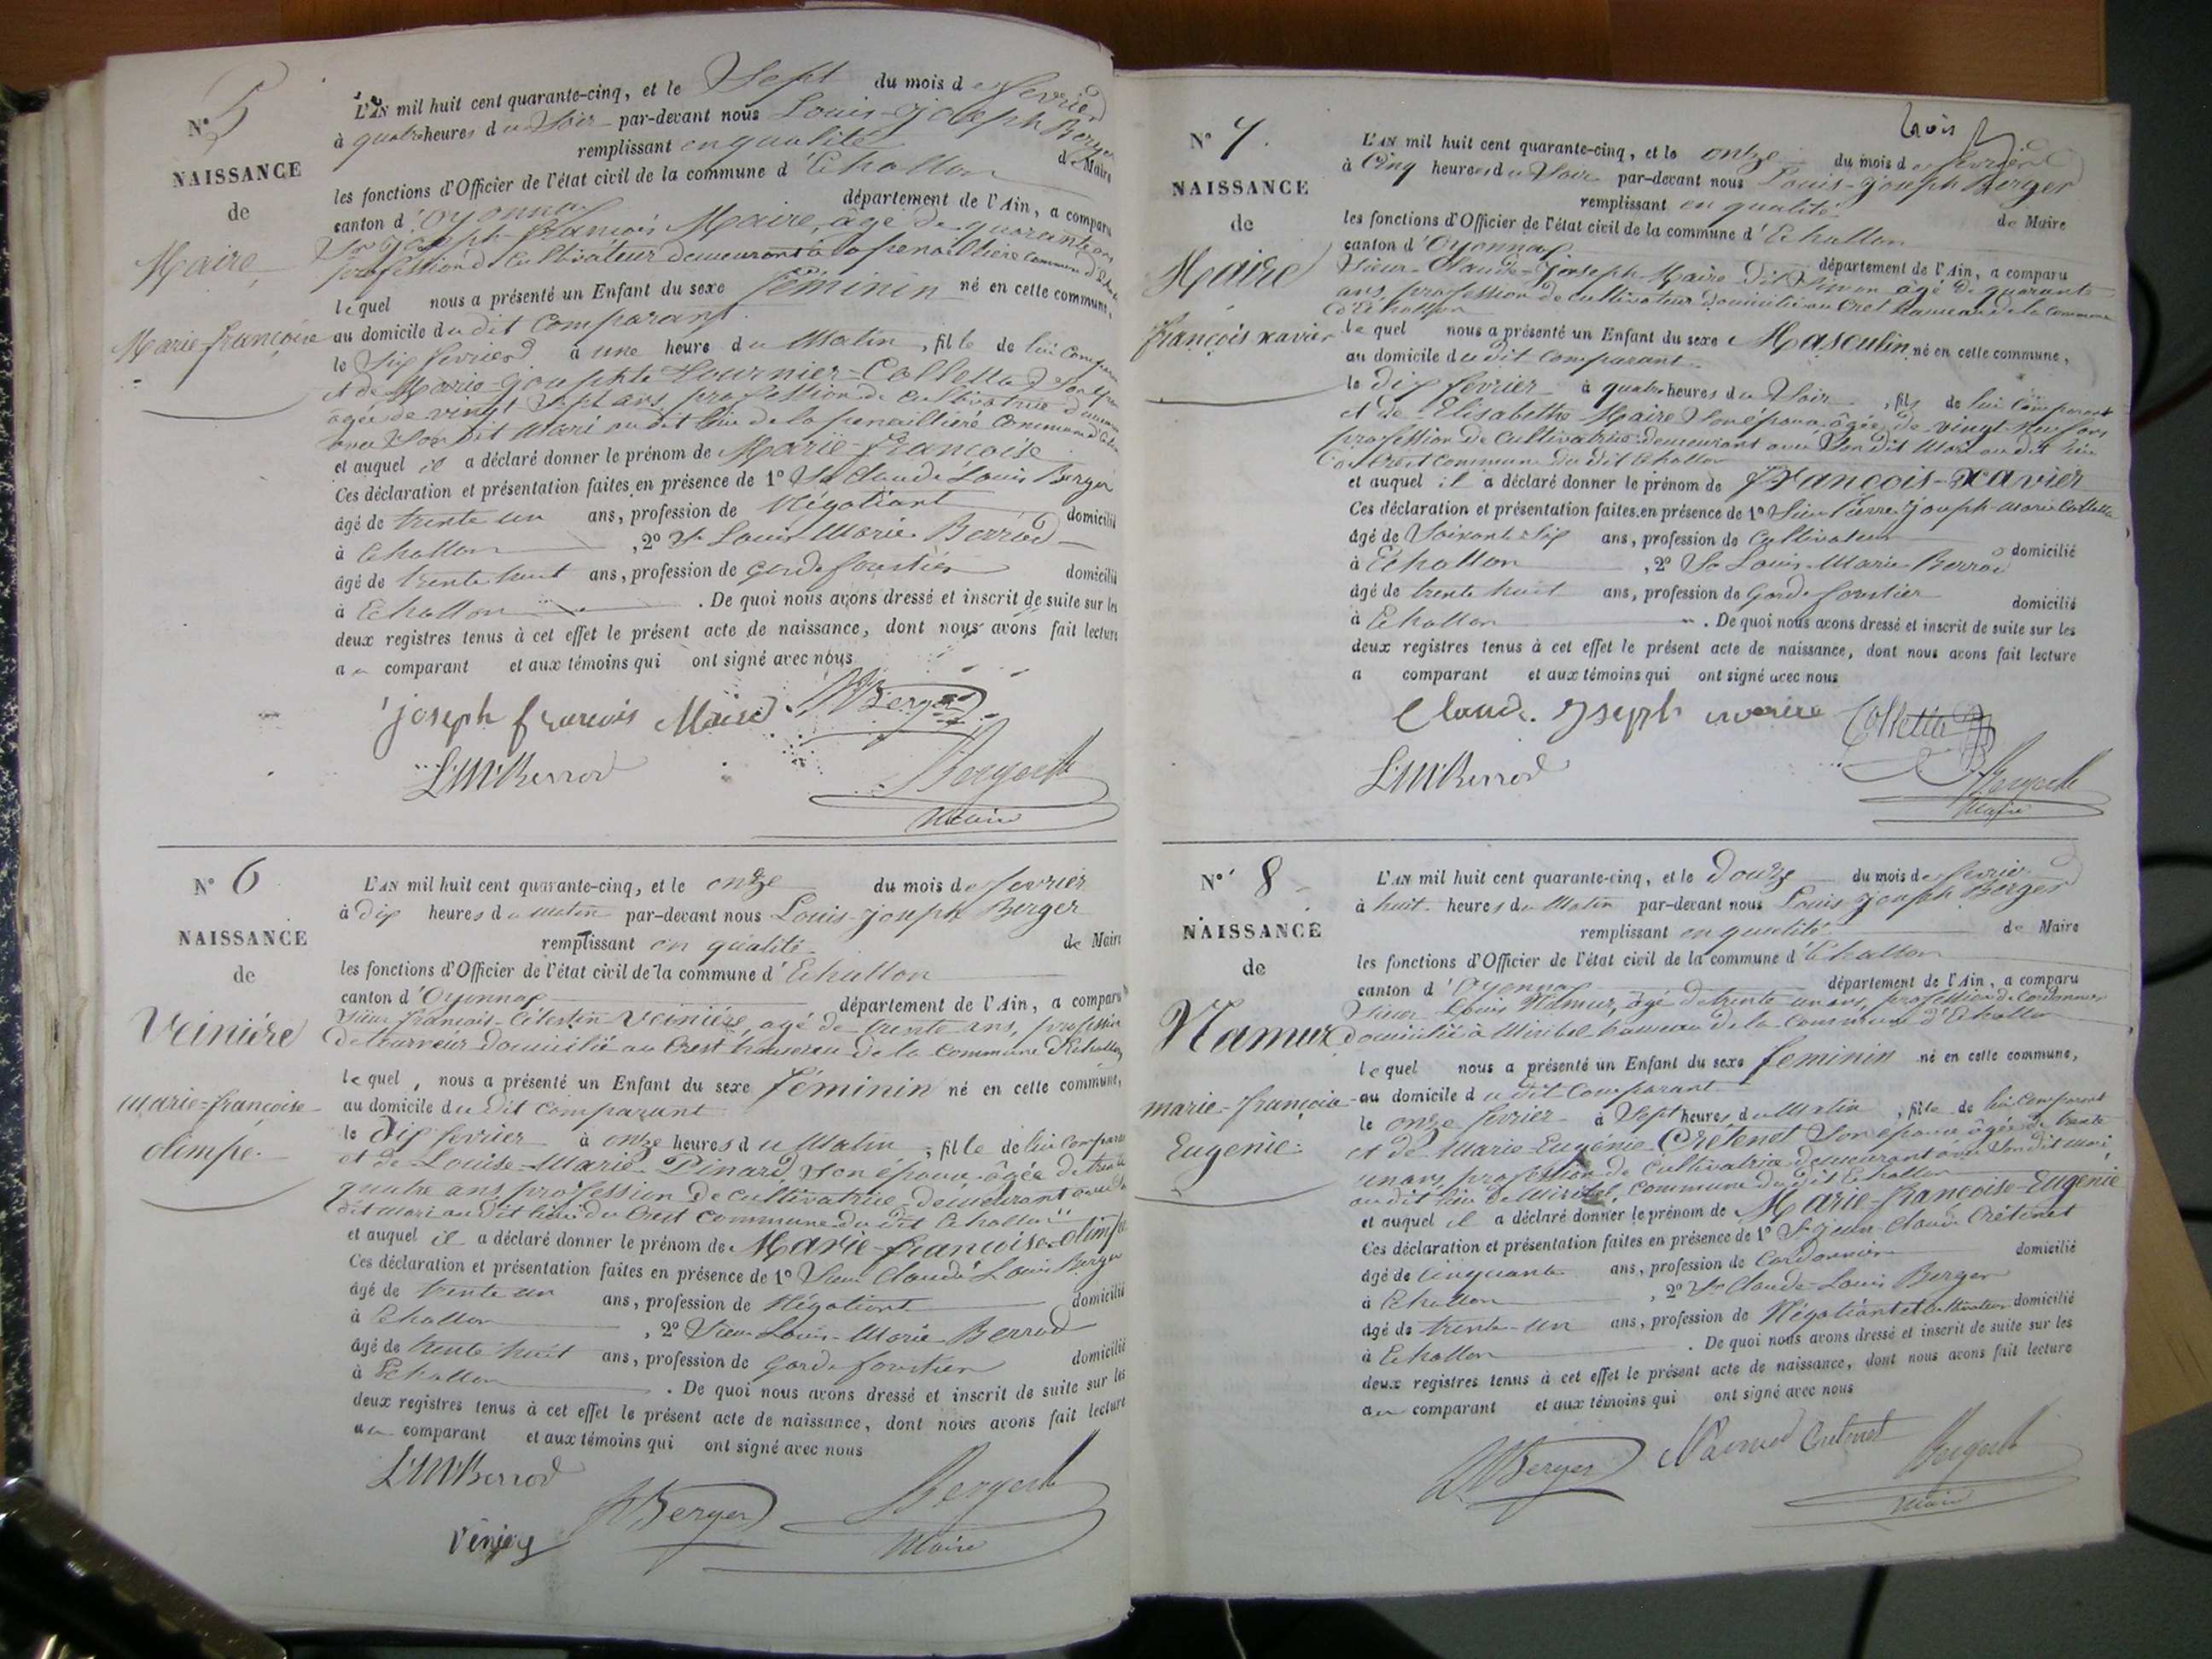 N° 5
NAISSANCE
de
Maire
Marie-françoise
L'AN mil huit cent quarante-cinq, et le Sept du mois de fevrier
à quatre heures du Soir par-devant nous Louis-joseph Berger
remplissant en qualité de Maire
les fonctions d'Officier de l'état civil de la commune d'Echallon
canton d'Oyonnax département de l'Ain, a comparu
Sr Joseph-françois Maire, âgé de quarante ans
profession de Cultivateur demeurant à la penaillière commune d'
lequel nous a présenté un Enfant du sexe féminin né en cette commune,
au domicile dudit Comparant.
le Six fevrier à une heure du Matin, fille de lui Comparant
et de Marie-josephte Tournier-Colletta Son
âgée de vingt Sept ans, profession de cultivatrice
avec Son dit Mari audit lieu de la penaillière Commune d'
et auquel il a déclaré donner le prénom de Marie-françoise
Ces déclaration et présentation faites en présence de 1° Sr Claude Louis Berger
âgé de trente un ans, profession de Négotiant domicilié
à Echallon, 2° Sr Louis Marie Berrod
âgé de trente huit ans, profession de garde forestier domicilié
à Echallon. De quoi nous avons dressé et inscrit de suite sur les
deux registres tenus à cet effet le présent acte de naissance, dont nous avons fait lecture
au comparant et aux témoins qui ont signé avec nous
joseph francois Maire Berger
L.M. Berrod Berger
Maire
N° 6
NAISSANCE
de
Veiniére
marie-françoise
olimpe.
L'AN mil huit cent quarante-cinq, et le onze du mois de fevrier
à dix heures du matin par-devant nous Louis-joseph Berger
remplissant en qualité de Maire
les fonctions d'Officier de l'état civil de la commune d'Echallon
canton d'Oyonnax département de l'Ain, a comparu
Sieur françois-Célestin Veiniére, âgé de trente ans, profession
de domicilié au Crest hameau de la commune d'Echallon
lequel, nous a présenté un Enfant du sexe féminin né en cette commune,
au domicile dudit comparant
le dix fevrier à onze heures du Matin, fille de lui Comparant
et de Louise-Marie Pinard, Son épouse âgée de trente
quatre ans, profession de cultivatrice demeurant avec
dit mari audit lieu du Crest commune du dit Echallon
et auquel il a déclaré donner le prénom de Marie-françoise-olimpe
Ces déclaration et présentation faites en présence de 1° Sieur Claude Louis Berger
âgé de trente un ans, profession de Négotiant domicilié
à Echallon, 2° Sieur Louis-Marie Berrod
âgé de trente huit ans, profession de garde forestier domicilié
à Echallon. De quoi nous avons dressé et inscrit de suite sur les
deux registres tenus à cet effet le présent acte de naissance, dont nous avons fait lecture
au comparant et aux témoins qui ont signé avec nous
L.M. Berrod
Berger Berger
Maire
trois
N° 7.
NAISSANCE
de
Maire
françois xavier
L'AN mil huit cent quarante-cinq, et le onze du mois de fevrier
à Cinq heures du Soir par-devant nous Louis-joseph Berger
remplissant en qualité de Maire
les fonctions d'Officier de l'état civil de la commune d'Echallon
canton d'Oyonnax département de l'Ain, a comparu
Sieur-Claude-Joseph-Maire dit âgé de quarante
ans, profession de cultivateur domicilié au Cret hameau de la Commune
d'Echallon
lequel nous a présenté un Enfant du sexe Masculin né en cette commune,
au domicile dudit Comparant.
le dix fevrier à quatre heures du Soir, fils de lui Comparant
et de Elisabethe Maire Son épouse âgée de vingt-neuf ans
profession de Cultivatrice demeurant avec Son dit Mari audit lieu
du Crest commune du dit Echallon
et auquel il a déclaré donner le prénom de françois-xavier
Ces déclaration et présentation faites en présence de 1° Sieur Pierre-joseph-marie Colletta
âgé de Soixante Six ans, profession de Cultivateur domicilié
à Echallon, 2° Sr Louis-Marie Berrod
âgé de trente huit ans, profession de garde forestier domicilié
à Echallon. De quoi nous avons dressé et inscrit de suite sur les
deux registres tenus à cet effet le présent acte de naissance, dont nous avons fait lecture
a comparant et aux témoins qui ont signé avec nous
Claude Joseph maire Colletta
L.M. Berrod Berger
Maire
N° 8
NAISSANCE
de
Namur
marie-françoise
Eugenie.
L'AN mil huit cent quarante-cinq, et le Douze du mois de fevrier
à huit heures du Matin par-devant nous Louis joseph Berger
remplissant en qualité de Maire
les fonctions d'Officier de l'état civil de la commune d'Echallon
canton d'Oyonnax département de l'Ain, a comparu
Sieur Louis Namur, âgé de trente un ans, profession de Cordonnier
domicilié à Miribel hameau de la Commune d'Echallon
lequel nous a présenté un Enfant du sexe feminin né en cette commune,
au domicile dudit Comparant
le onze fevrier à Sept heures du Matin, fille de lui Comparant
et de Marie-Eugénie Crétenet Son épouse âgée de trente
un ans, profession de Cultivatrice demeurant avec Son dit Mari,
audit lieu de Miribel, commune du dit Echallon
et auquel il a déclaré donner le prénom de Marie-françoise-Eugenie
Ces déclaration et présentation faites en présence de 1° Sr jean-Claude Crétenet
âgé de Cinquante ans, profession de Cordonnier domicilié
à Echallon, 2° Sr Claude-Louis Berger
âgé de trente-un ans, profession de Négotiant et Cultivateur domicilié
à Echallon. De quoi nous avons dressé et inscrit de suite sur les
deux registres tenus à cet effet le présent acte de naissance, dont nous avons fait lecture
au comparant et aux témoins qui ont signé avec nous
Berger Namur Cretenet Berger
Maire